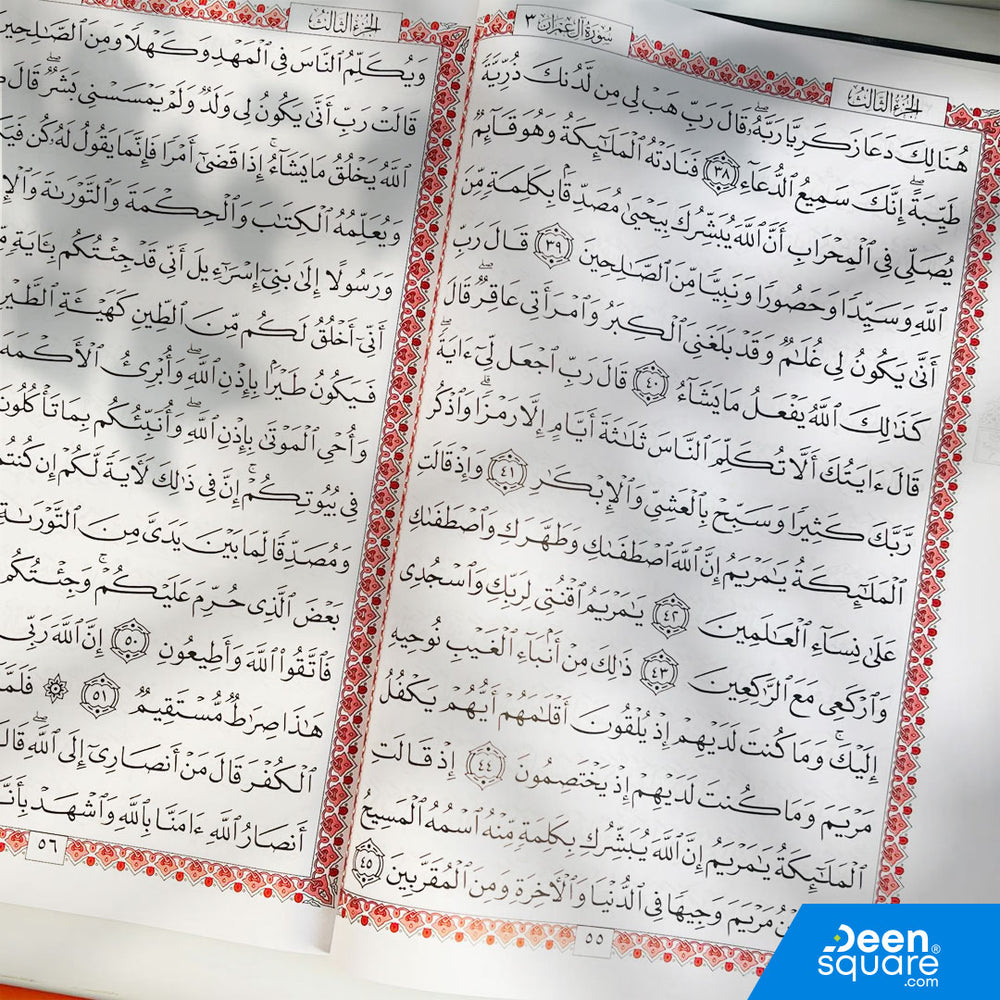 سورة آل عمران ٣
الجزء الثالث
هُنَالِكَ دَعَا زَكَرِيَّا رَبَّهُۥۖ قَالَ رَبِّ هَبْ لِى مِن لَّدُنكَ ذُرِّيَّةً
طَيِّبَةًۖ إِنَّكَ سَمِيعُ ٱلدُّعَآءِ ٣٨ فَنَادَتْهُ ٱلْمَلَـٰٓئِكَةُ وَهُوَ قَآئِمٌ
يُصَلِّى فِى ٱلْمِحْرَابِ أَنَّ ٱللَّهَ يُبَشِّرُكَ بِيَحْيَىٰ مُصَدِّقًۢا بِكَلِمَةٍ مِّنَ
ٱللَّهِ وَسَيِّدًا وَحَصُورًا وَنَبِيًّا مِّنَ ٱلصَّـٰلِحِينَ ٣٩ قَالَ رَبِّ
أَنَّىٰ يَكُونُ لِى غُلَـٰمٌ وَقَدْ بَلَغَنِىَ ٱلْكِبَرُ وَٱمْرَأَتِى عَاقِرٌۖ قَالَ
كَذَٰلِكَ ٱللَّهُ يَفْعَلُ مَا يَشَآءُ ٤٠ قَالَ رَبِّ ٱجْعَل لِّىٓ ءَايَةًۖ
قَالَ ءَايَتُكَ أَلَّا تُكَلِّمَ ٱلنَّاسَ ثَلَـٰثَةَ أَيَّامٍ إِلَّا رَمْزًاۗ وَٱذْكُر
رَّبَّكَ كَثِيرًا وَسَبِّحْ بِٱلْعَشِىِّ وَٱلْإِبْكَـٰرِ ٤١ وَإِذْ قَالَتِ
ٱلْمَلَـٰٓئِكَةُ يَـٰمَرْيَمُ إِنَّ ٱللَّهَ ٱصْطَفَىٰكِ وَطَهَّرَكِ وَٱصْطَفَىٰكِ
عَلَىٰ نِسَآءِ ٱلْعَـٰلَمِينَ ٤٢ يَـٰمَرْيَمُ ٱقْنُتِى لِرَبِّكِ وَٱسْجُدِى
وَٱرْكَعِى مَعَ ٱلرَّٰكِعِينَ ٤٣ ذَٰلِكَ مِنْ أَنۢبَآءِ ٱلْغَيْبِ نُوحِيهِ
إِلَيْكَۚ وَمَا كُنتَ لَدَيْهِمْ إِذْ يُلْقُونَ أَقْلَـٰمَهُمْ أَيُّهُمْ يَكْفُلُ
مَرْيَمَ وَمَا كُنتَ لَدَيْهِمْ إِذْ يَخْتَصِمُونَ ٤٤ إِذْ قَالَتِ
ٱلْمَلَـٰٓئِكَةُ يَـٰمَرْيَمُ إِنَّ ٱللَّهَ يُبَشِّرُكِ بِكَلِمَةٍ مِّنْهُ ٱسْمُهُ ٱلْمَسِيحُ
مَرْيَمَ وَجِيهًا فِى ٱلدُّنْيَا وَٱلْـَٔاخِرَةِ وَمِنَ ٱلْمُقَرَّبِينَ ٤٥
٥٥
الجزء الثالث
وَيُكَلِّمُ ٱلنَّاسَ فِى ٱلْمَهْدِ وَكَهْلًا وَمِنَ ٱلصَّـٰلِحِينَ
قَالَتْ رَبِّ أَنَّىٰ يَكُونُ لِى وَلَدٌ وَلَمْ يَمْسَسْنِى بَشَرٌۖ قَالَ
ٱللَّهُ يَخْلُقُ مَا يَشَآءُۚ إِذَا قَضَىٰٓ أَمْرًا فَإِنَّمَا يَقُولُ لَهُۥ كُن
وَيُعَلِّمُهُ ٱلْكِتَـٰبَ وَٱلْحِكْمَةَ وَٱلتَّوْرَىٰةَ
وَرَسُولًا إِلَىٰ بَنِىٓ إِسْرَٰٓءِيلَ أَنِّى قَدْ جِئْتُكُم بِـَٔايَةٍ
أَنِّىٓ أَخْلُقُ لَكُم مِّنَ ٱلطِّينِ كَهَيْـَٔةِ ٱلطَّيْرِ
فَيَكُونُ طَيْرًۢا بِإِذْنِ ٱللَّهِۖ وَأُبْرِئُ ٱلْأَكْمَهَ
وَأُحْىِ ٱلْمَوْتَىٰ بِإِذْنِ ٱللَّهِۖ وَأُنَبِّئُكُم بِمَا تَأْكُلُونَ
فِى بُيُوتِكُمْۚ إِنَّ فِى ذَٰلِكَ لَـَٔايَةً لَّكُمْ إِن كُنتُم
وَمُصَدِّقًا لِّمَا بَيْنَ يَدَىَّ مِنَ ٱلتَّوْرَىٰةِ
بَعْضَ ٱلَّذِى حُرِّمَ عَلَيْكُمْۚ وَجِئْتُكُم
فَٱتَّقُوا۟ ٱللَّهَ وَأَطِيعُونِ ٥٠ إِنَّ ٱللَّهَ رَبِّى
هَـٰذَا صِرَٰطٌ مُّسْتَقِيمٌ ٥١ ۞ فَلَمَّآ
ٱلْكُفْرَ قَالَ مَنْ أَنصَارِىٓ إِلَى ٱللَّهِۖ قَالَ
أَنصَارُ ٱللَّهِ ءَامَنَّا بِٱللَّهِ وَٱشْهَدْ بِأَنَّا
٥٦
Deen
square®
.com